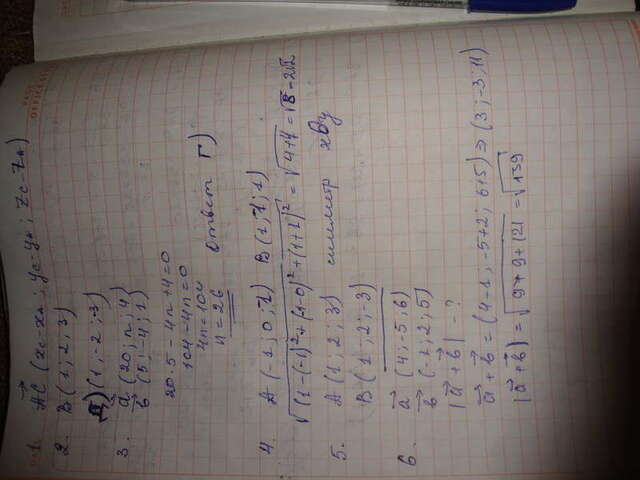 1. AC (xc-xa; yc-ya; zc-za)
2. B (1; 2; 3)
Д) (1; -2; -3)
3. a (20; n; 4)
b (5; -4; 1)
20·5-4n+4=0
104-4n=0
4n=104
n=26 Ответ Г)
4. A (-1; 0; 1) B (1; 1; 1)
√(1-(-1)²+(1-0)²+(1+1)² = √4+4 = √8 = 2√2
5. A (1; 2; 3) симметр xOy
B (1; 2; -3)
6. a (4; -5; 6)
b (-1; 2; 5)
|a+b| - ?
a+b = (4-1; -5+2; 6+5) ⇒ (3; -3; 11)
|a+b| = √9+9+121 = √139